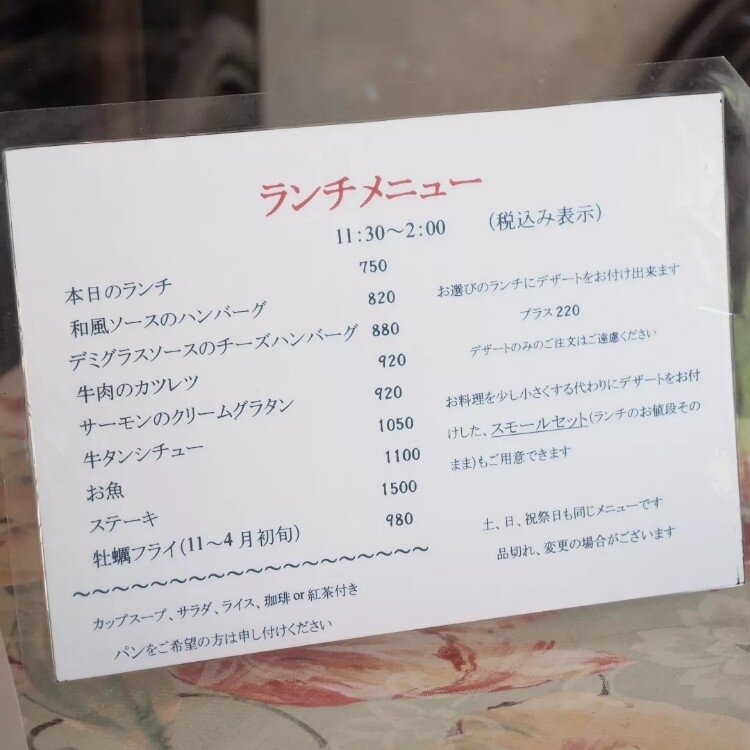 ランチメニュー
11:30～2:00 (税込み表示)
本日のランチ 750
和風ソースのハンバーグ 820
デミグラスソースのチーズハンバーグ 880
牛肉のカツレツ 920
サーモンのクリームグラタン 920
牛タンシチュー 1050
お魚 1100
ステーキ 1500
牡蠣フライ(11～4月初旬) 980
～～～～～～～～～～～～～～～～～～
カップスープ、サラダ、ライス、珈琲 or 紅茶付き
パンをご希望の方は申し付けください
お選びのランチにデザートをお付け出来ます
プラス 220
デザートのみのご注文はご遠慮ください
お料理を少し小さくする代わりにデザートをお付
けした、スモールセット(ランチのお値段その
まま)もご用意できます
土、日、祝祭日も同じメニューです
品切れ、変更の場合がございます